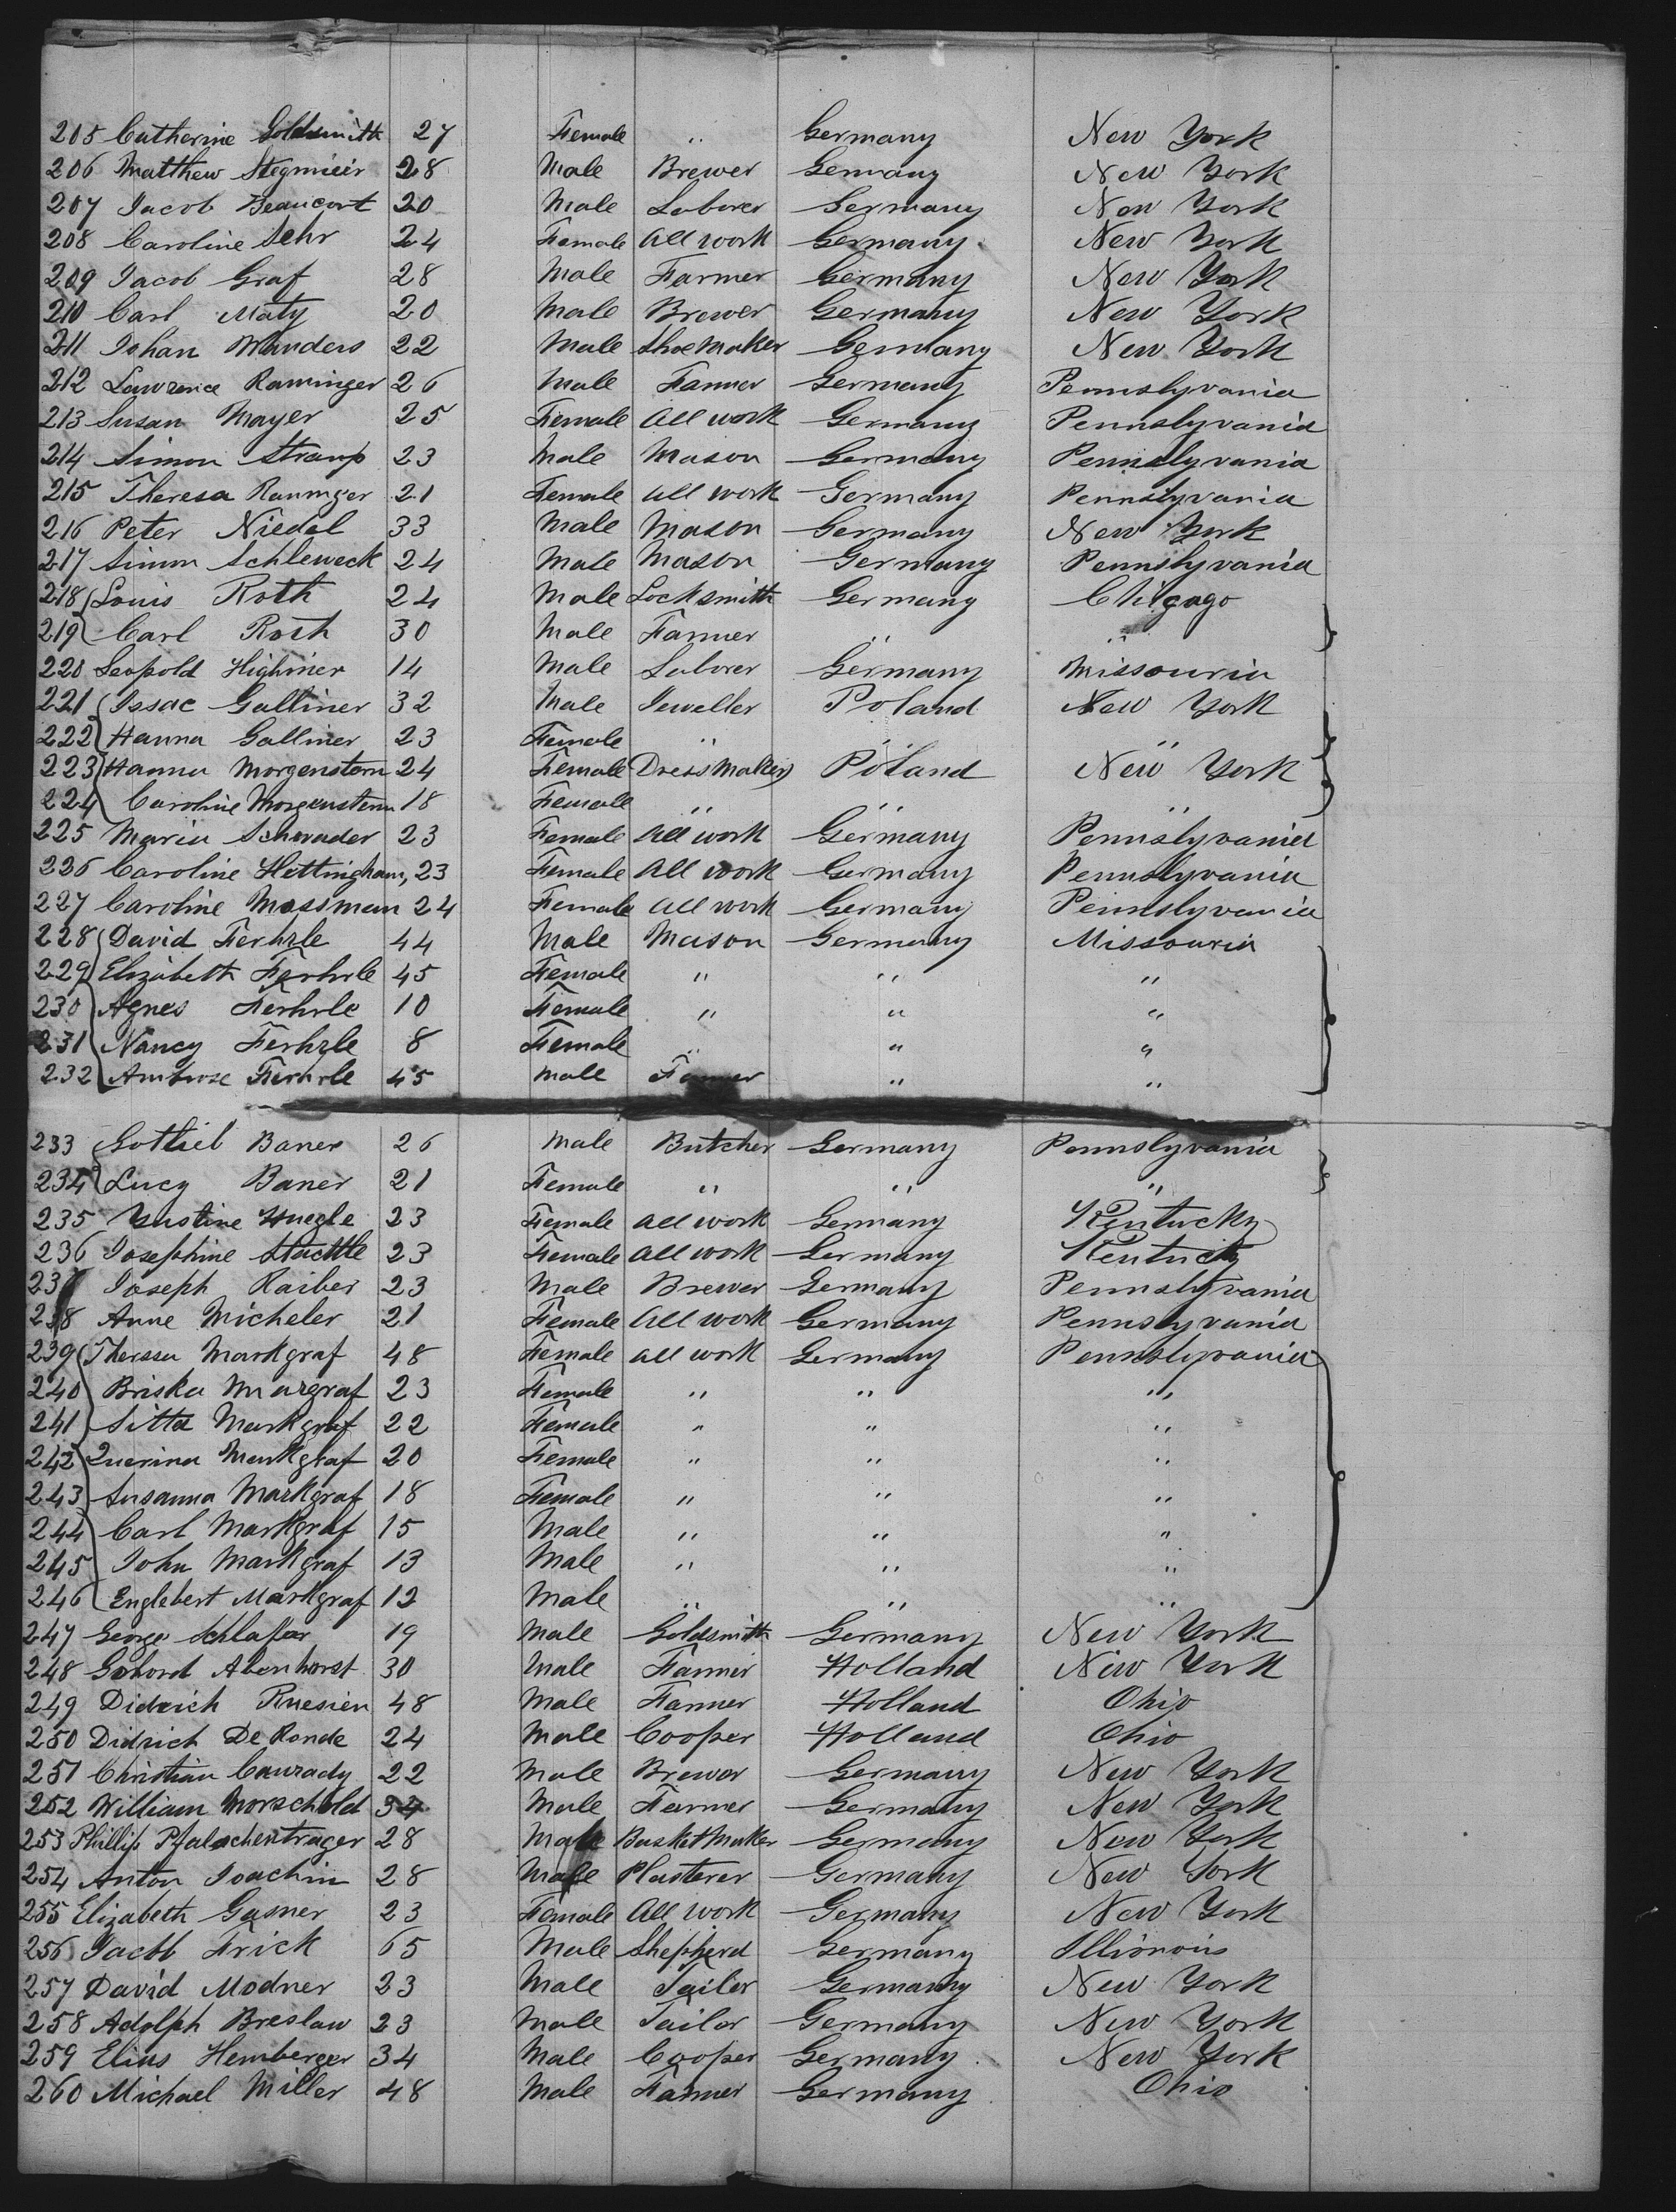 205 Catherine Goldsmith 27 Female " Germany New York
206 Matthew Stegmieir 28 Male Brewer Germany New York
207 Jacob Beaucort 20 Male Laborer Germany New York
208 Caroline Sehr 24 Female All work Germany New York
209 Jacob Graf 28 Male Farmer Germany New York
210 Carl Maty 20 Male Brewer Germany New York
211 Johan Wanders 22 Male Shoemaker Germany New York
212 Lawrence Raminger 26 Male Farmer Germany Pennslyvania
213 Susan Mayer 25 Female All work Germany Pennslyvania
214 Simon Straup 23 Male Mason Germany Pennslyvania
215 Theresa Raminger 21 Female All work Germany Pennslyvania
216 Peter Niedel 33 Male Mason Germany New York
217 Simon Schleweck 24 Male Mason Germany Pennslyvania
218 Louis Roth 24 Male Locksmith Germany Chicago
219 Carl Roth 30 Male Farmer " "
220 Leopold Highiner 14 Male Laborer Germany Missouria
221 Issac Galliner 32 Male Jeweller Poland New York
222 Hanna Galliner 23 Female " " "
223 Hanna Morgenstern 24 Female Dressmaker Poland New York
224 Caroline Morgenstern 18 Female " " "
225 Maria Schrader 23 Female All work Germany Pennslyvania
226 Caroline Hettingham, 23 Female All work Germany Pennslyvania
227 Caroline Mossman 24 Female All work Germany Pennslyvania
228 David Ferhrle 44 Male Mason Germany Missouria
229 Elizabeth Ferhrle 45 Female " " "
230 Agnes Ferhrle 10 Female " " "
231 Nancy Ferhrle 8 Female " " "
232 Ambrose Ferhrle 45 Male Farmer " "
233 Gotlieb Baner 26 Male Butcher Germany Pennslyvania
234 Lucy Baner 21 Female " " "
235 Justine Huegle 23 Female All work Germany Kentucky
236 Josephine Stuckle 23 Female All work Germany Kentucky
237 Joseph Raiber 23 Male Brewer Germany Pennslyvania
238 Anne Micheler 21 Female All work Germany Pennslyvania
239 Theressa Markgraf 48 Female All work Germany Pennslyvania
240 Briska Margraf 23 Female " " "
241 Sitta Markgraf 22 Female " " "
242 Querina Markgraf 20 Female " " "
243 Susanna Markgraf 18 Female " " "
244 Carl Markgraf 15 Male " " "
245 John Markgraf 13 Male " " "
246 Englebert Markgraf 12 Male " " "
247 George Schlafer 19 Male Goldsmith Germany New York
248 Gohord Abenhorst 30 Male Farmer Holland New York
249 Didrich Ruesien 48 Male Farmer Holland Ohio
250 Didrich De Ronde 24 Male Cooper Holland Ohio
251 Christian Caurady 22 Male Brewer Germany New York
252 William Morschold 34 Male Farmer Germany New York
253 Phillip Pfalschentrager 28 Male Basket Maker Germany New York
254 Anton Joachim 28 Male Plasterer Germany New York
255 Elizabeth Gasner 23 Female All work Germany New York
256 Jacob Frick 65 Male Shepherd Germany Illionois
257 David Modner 23 Male Tailor Germany New York
258 Adolph Breslaw 23 Male Tailor Germany New York
259 Elias Hemberger 34 Male Cooper Germany New York
260 Michael Miller 48 Male Farmer Germany Ohio